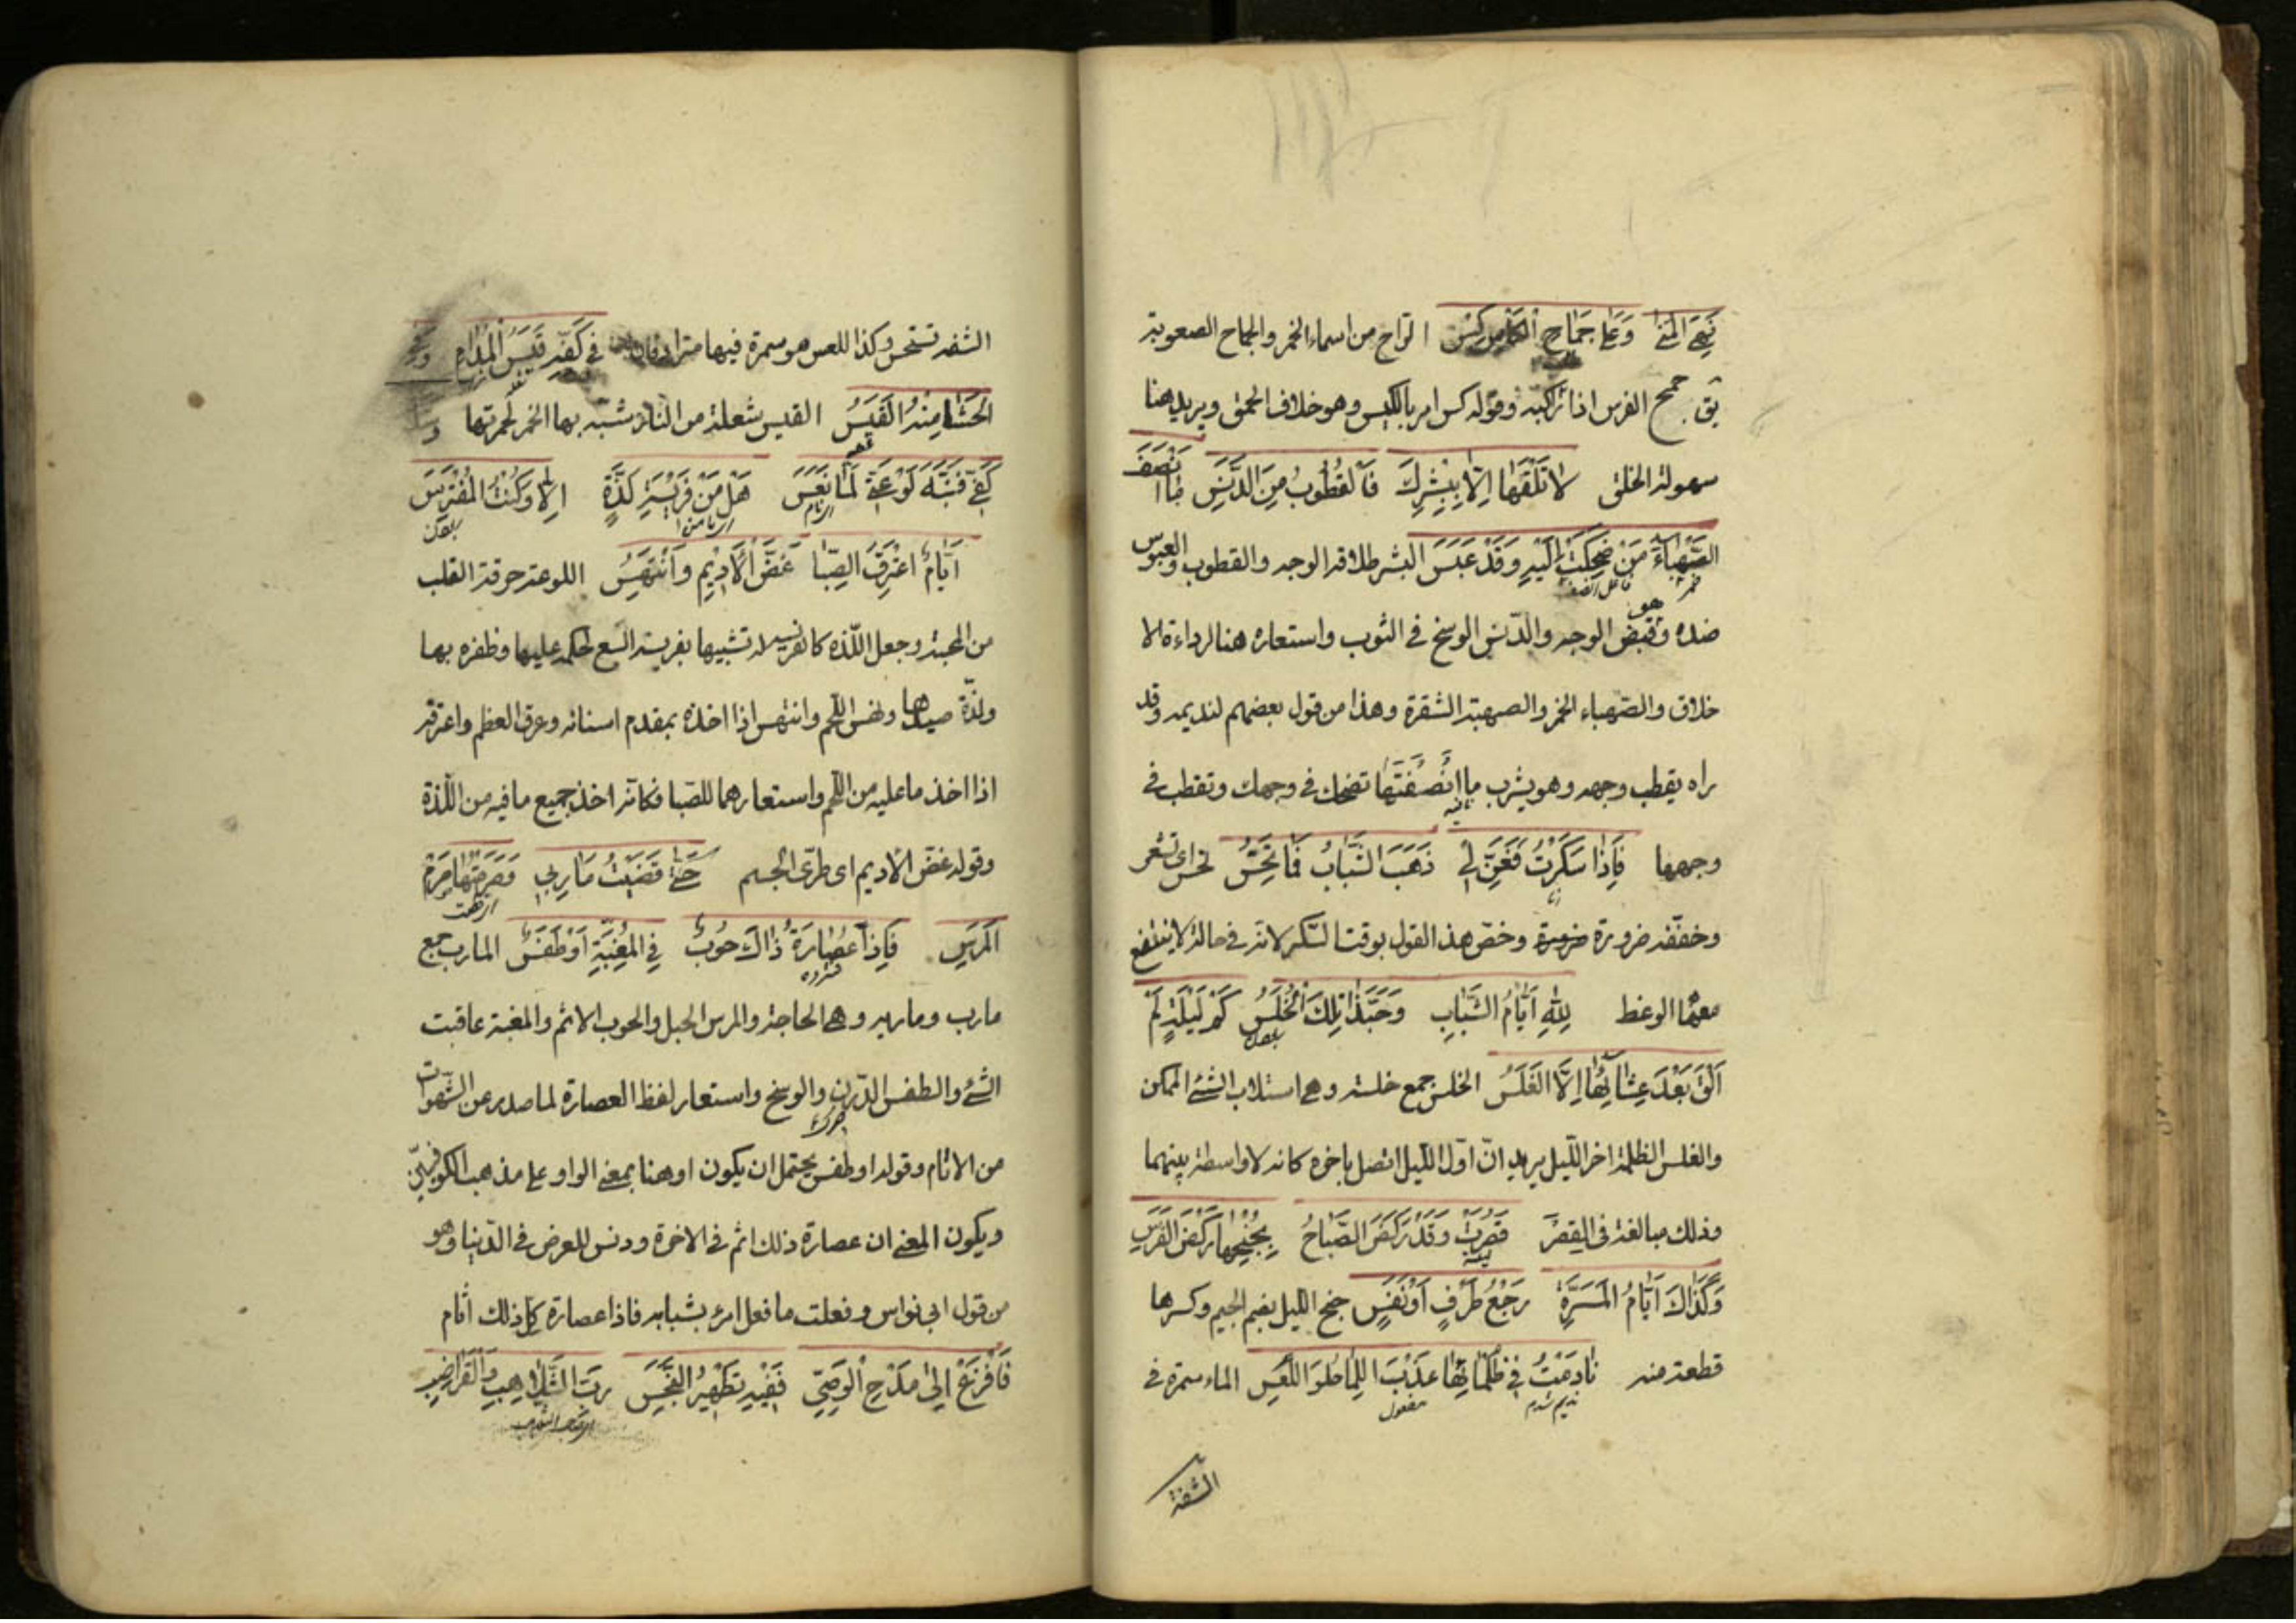 نَهْجَ المُنَىٰ وَعَلَى جِمَاحِ الكَأْسِ كِسْ الراح من اسماء الخمر والجماح الصعوبة
يق جمح الفرس اذا تراكبه وقوله كس امر بالكيس وهو خلاف الحمق ويريد هنا
سهولة الخلق لَا تَلْقَهَا اِلَّا بِبِشْرِكَ فَالقُطُوبُ مِنَ الدَّنَسِ مَا اَنْصَفَ
الصَّهْبَاءَ مَنْ ضَحِكَتْ اِلَيْهِ وَقَدْ عَبَسَ البشر طلاقة الوجه والقطوب والعبوس
ضده هو وقبض الوجه والدنس الوسخ فى الثوب واستعاره هنا لرداءة الا
خلاق والصهباء الخمر والصهبة الشقرة وهذا من قول بعضهم لنديمه وقد
راه يقطب وجهه وهو يشرب ما اَنْصَفْتَهَا تضحك فى وجهك وتقطب فى
وجهها فَاِذَا سَكَرْتُ فَغَنِّ لِي ذَهَبَ الشَّبَابُ فَمَا تَحَسُّ تحس اى تشعر
وخففه ضرورة وخص هذ القول بوقت السكر لانه فى حالة لا ينتفع
معها الوعظ لِلّٰهِ اَيَّامُ الشَّبَابِ وَحَبَّذَا تِلْكَ الْخُلَسُ كَمْ لَيْلَةٍ لَمْ
اَلْقَ بَعْدَ عِشَائِهَا اِلَّا الغَلَسُ الخلس جمع خلسة وهى استلاب الشئ الممكن
والغلس الظلمة اخر الليل يريد ان اول الليل اتصل باخره كانه لا واسطة بينهما
وذلك مبالغة فى القِصَر قَصُرَتْ وَقَدْ رَكَضَ الصَّبَاحُ بِجُنْحِهَا رَكْضَ الفَرَسِ
وَكَذَاكَ اَيَّامُ المَسَرَّةِ رَجْعُ طَرْفٍ اَوْ نَفَسٍ جنح الليل بضم الجيم وكسرها
قطعة منه نَادَمْتُ فِي ظَلْمَائِهَا عَذْبَ اللِّمَا حُلْوَ اللَّعَسِ الماء سمرة فى
نديم شدم مفعول
الشفة
الشفه تستحسن وكذا اللعس هو سمرة فيها مترادفان فِي كَفِّهِ قَبَسُ المُدَامِ وَفِي
الحَشَا مِنْهُ القَبَسُ القبس شعلة من النار شبه بها الخمر لحمرتها
كَفِّي فَنَبَّهَ لَوْعَةً لَمَّا نَعَسَ هَلْ مَنْ فَرِيْسَةِ لَذَّةٍ اِلَّا وَكُنْتُ المُفْتَرِسَ
اَيَّامُ اَعْتَرِقُ الصِّبَا غَضَّ الْاَدِيْمِ وَاَنْتَهِسُ اللوعة حرقة القلب
من المحبة وجعل اللذة كالفريسة تشبيها بفريسة السبع لحكمه عليها وظفره بها
ولذة صيدها ونهس اللحم وانتهس اذا اخذه بمقدم اسنانه وعرق العظم واعترقه
اذا اخذ ما عليه من اللحم واستعارهما للصبا فكانه اخذ جميع ما فيه من اللذة
وقوله غض الاديم اى طرى الجسم حَتَّى قَضَيْتُ مَارِبِي وَصَرَمْتُهَا صَرْمَ
المَرَسِ فَاِذَا عُصَارَةُ ذَاكَ حُوبٌ فِي المَغِبَّةِ اَوْ طَفَسٌ المارب جمع
مارب ومارب وهى الحاجة والمرس الحبل والحوب الاثم والمغبة عاقبت
الشئ والطفس الدرن والوسخ واستعار لفظ العصارة لما صدر عن الشهوات
من الاثام وقوله او طفس يحتمل ان يكون او هنا بمعنى الواو على مذهب الكوفيين
ويكون المعنى ان عصارة ذلك اثم فى الاخرة ودنس للعرض فى الدنيا وهو
من قول ابى نواس وفعلت ما فعل امرء بشبابه فاذا عصارة كل ذلك اثام
فَافْزَعْ اِلَى مَدْحِ الوَصِيِّ فَفِيْهِ تَطْهِيْرُ النَّجَسِ رَبِّ السَّلَاهِبِ وَالقَرَاضِبِ